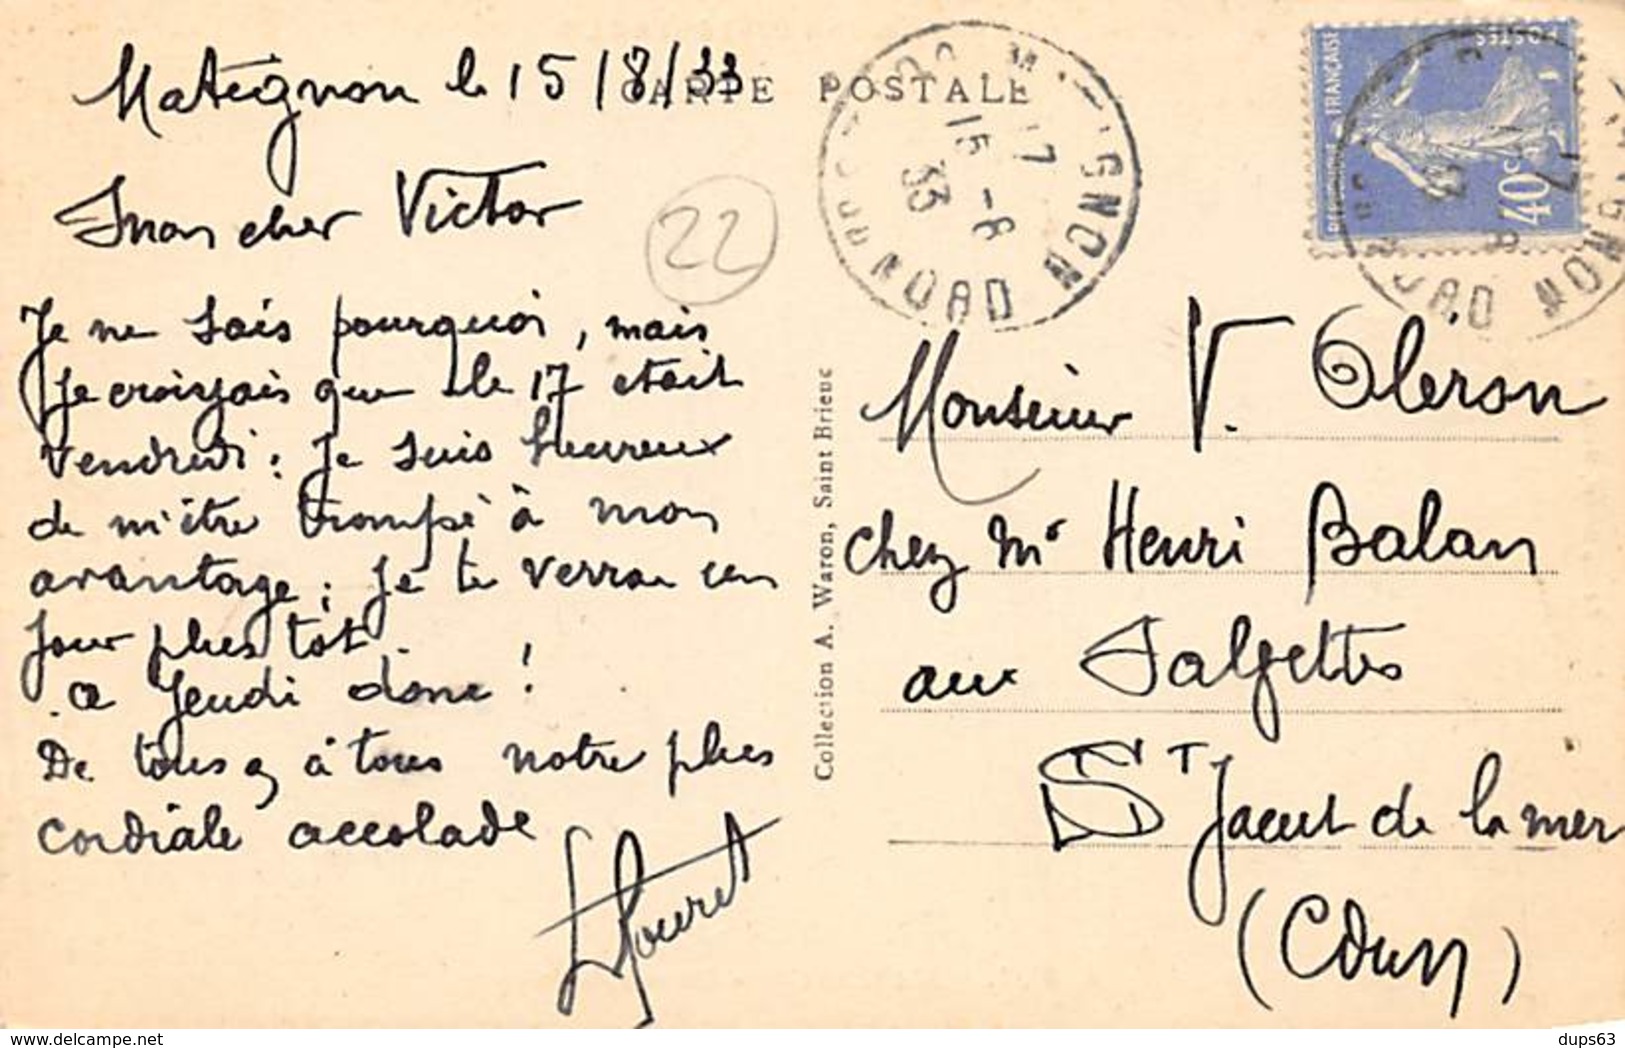 CARTE POSTALE
Matignon le 15/8/33
Mon cher Victor
22
Je ne sais pourquoi, mais
je croisyais que le 17 etait
vendredi : Je suis heureux
de m'être trompé à mon
avantage ; je te verrai un
jour plus tôt.
a Jeudi donc !
De tous à tous notre plus
cordiale accolade
Collection A. Waron, Saint Brieuc
MATIGNON
17
15 - 8
33
COTES DU NORD
POSTES
REPUBLIQUE FRANÇAISE
40c
Monsieur V. Oleron
chez Mr Henri Balan
aux
St Jacut de la mer
(Cdun)
www.delcampe.net
dups63